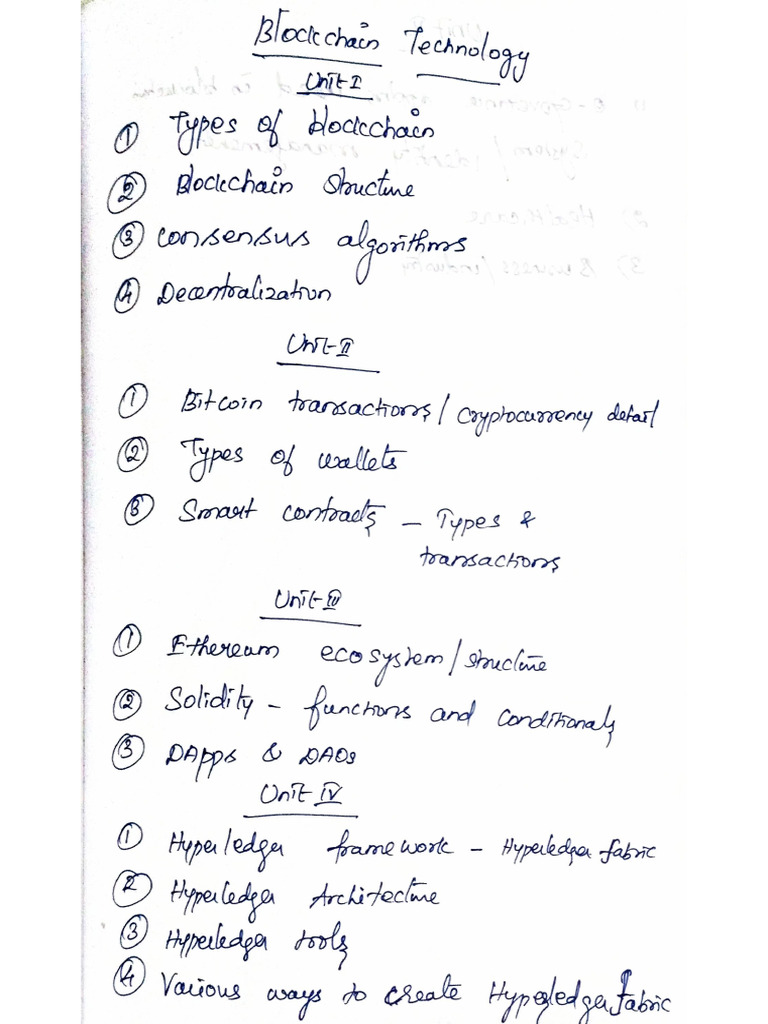 Blockchain Technology
Unit-I
① Types of blockchain
② Blockchain structure
③ consensus algorithms
④ Decentralization
Unit-II
① Bitcoin transactions/cryptocurrency detail
② Types of wallets
③ Smart contracts – Types &
transactions
Unit-III
① Ethereum ecosystem/structure
② Solidity – functions and conditionals
③ DApps & DAOs
Unit IV
① Hyperledger framework – Hyperledger fabric
② Hyperledger Architecture
③ Hyperledger tools
④ Various ways to create Hyperledger fabric